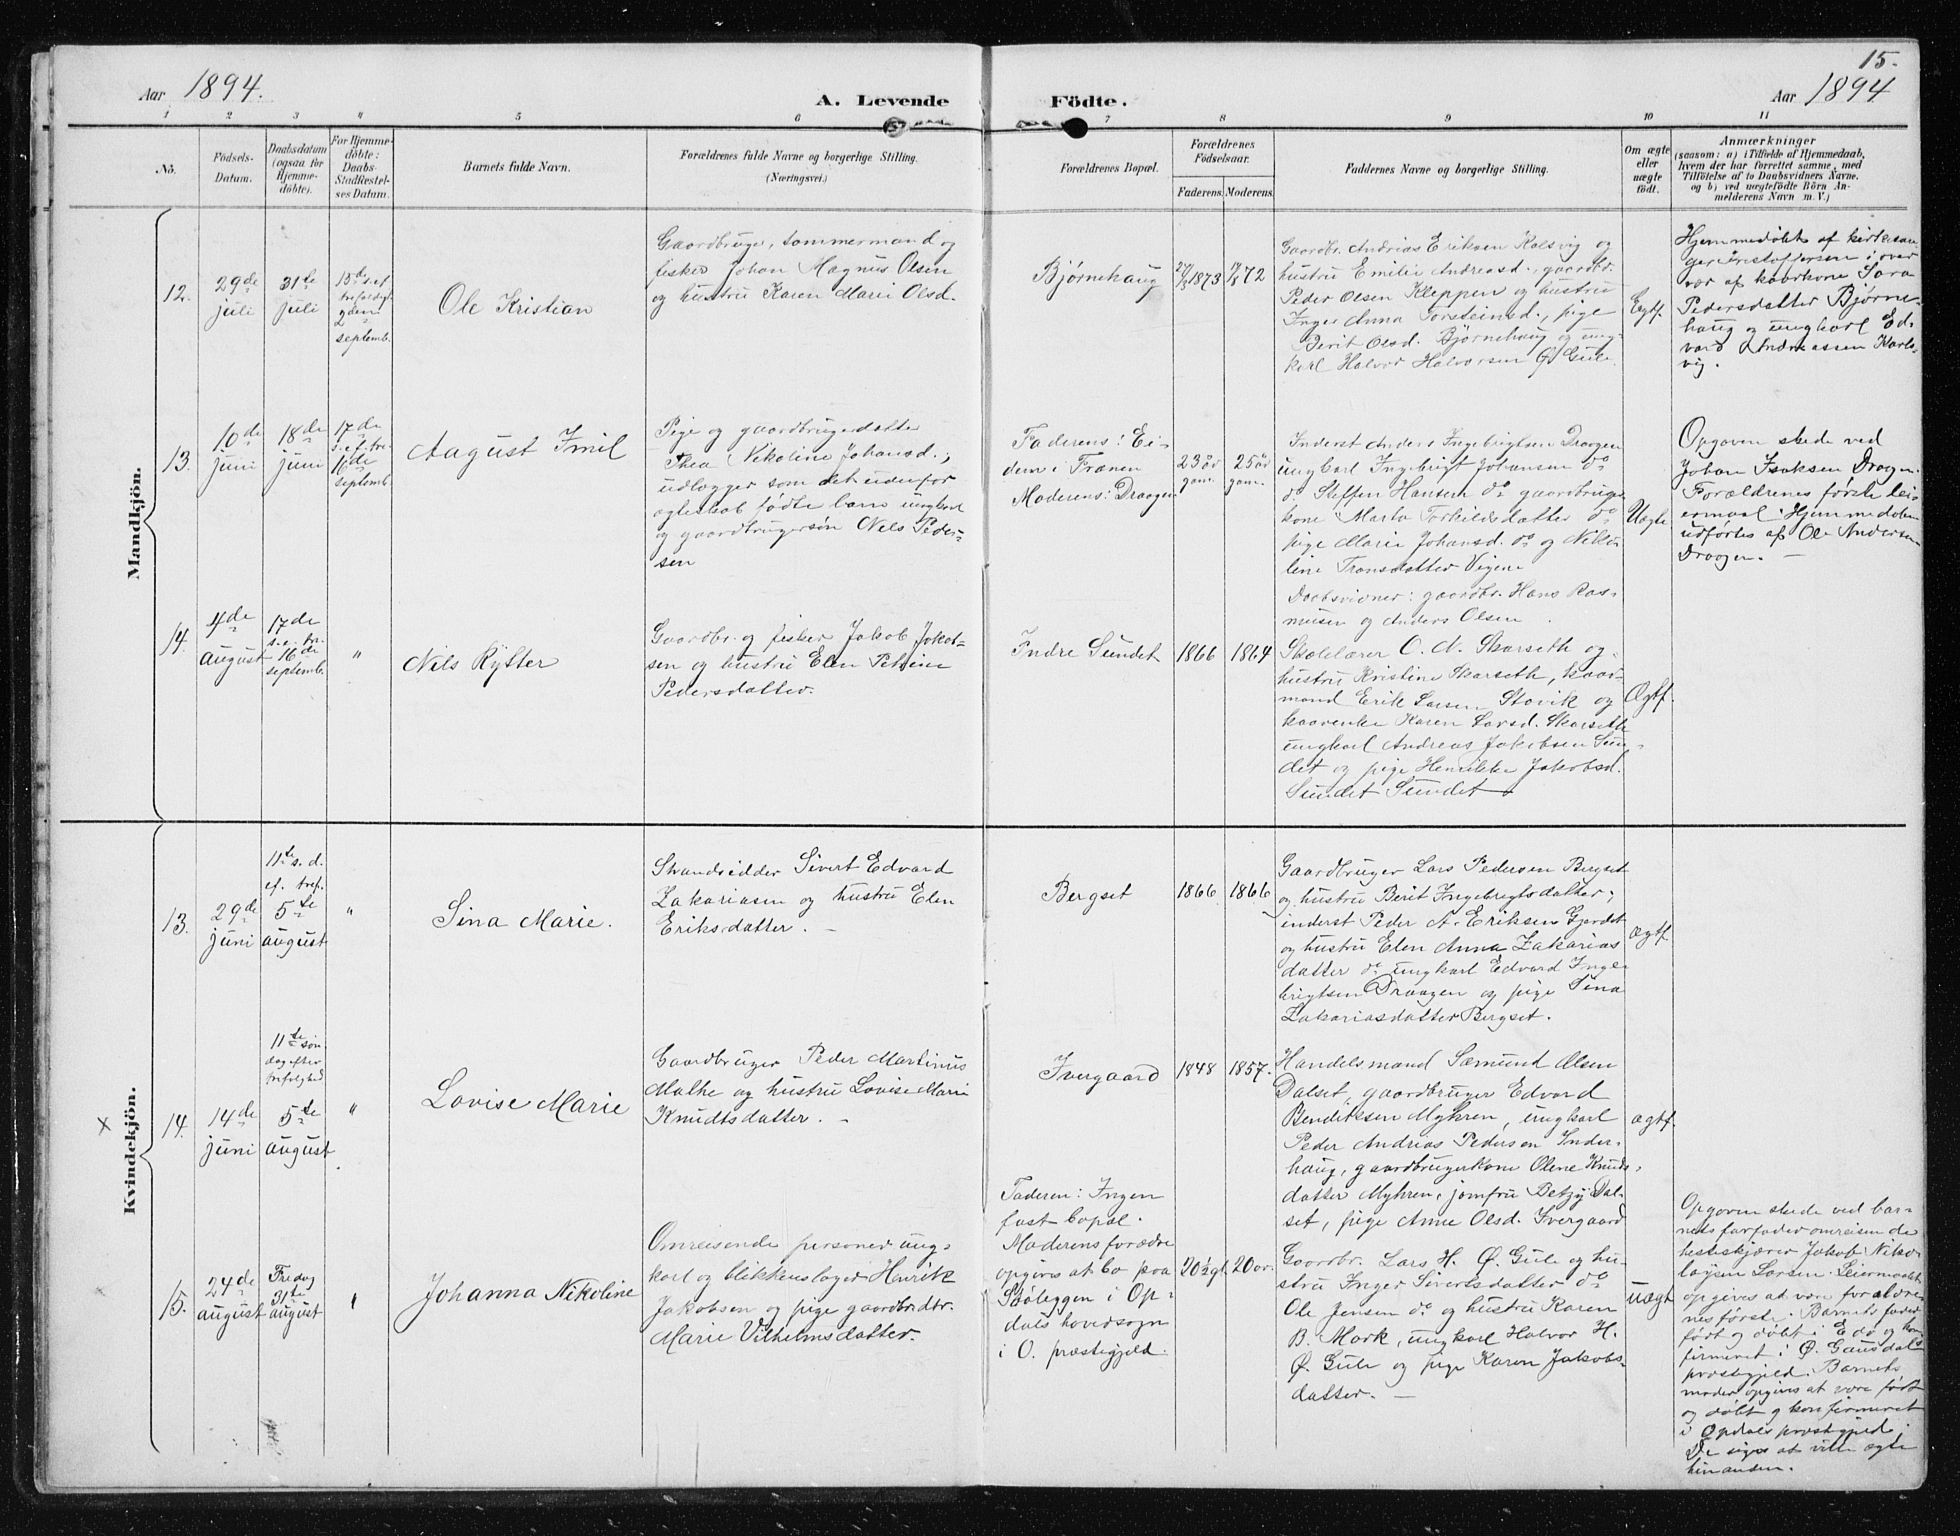 15.
Aar 1894.
A. Levende Födte.
Aar 1894
1 2 3 " 5 6 7 8 9 10 11
No.
Födsels-
Datum.
Daabsdatum
(ogsaa for
Hjemme-
döbte).
For Hjemme-
döbte:
Daabs-
Stadfæstel-
ses Datum.
Barnets fulde Navn.
Forældrenes fulde Navne og borgerlige Stilling.
(Næringsvei.)
Forældrenes Bopæl.
Forældrenes
Födselsaar.
Faderens. Moderens.
Faddernes Navne og borgerlige Stilling.
Om ægte
eller
uægte
födt.
Anmærkninger
(saasom: a) i Tilfælde af Hjemmedaab,
hvem der har forrettet samme, med
Tilföielse af to Daabsvidners Navne,
og b) ved uægtefödte Börn An-
melderens Navn m. V.)
Mandkjön.
12.
29de
juli
31te
juli
15de s. ef.
trefoldigh
2
septemb.
Ole Kristian
Gaardbruger, tømmermand og
fisker Johan Magnus Olsen
og hustru Karen Marie Olsd.
Bjørnehaug
1873
72
Gaardbr. Andrias Eriksen Kalsvig og
hustru Emilie Andreasd., gaardbr.
Peder Olsen Kleppen og hustru
Inger Anna Torsteinsd., pige
Berit Olsd. Bjørnehaug og ung-
karl Halvor Halvorsen Ø. Gule.
Egtf.
Hjemmedøbt af kirkesan-
ger Kristoffersen i over-
vær af kaarkone Sara
Pedersdatter Bjørne-
haug og ungkarl Ed-
vard Andreassen Karls-
vig.
13.
10de
juni
18de
juni
17de
s. ef. tre-
16de
septemb.
August Emil
Pige og gaardbrugerdatter
Thea Nikoline Johansd.;
udlægger som det udenfor
ægteskab fødte barn ungkarl
og gaardbrugersøn Nels Peder-
sen
Faderens: Ei-
dem i Frænen
Moderens: Draagen
23 år
gam.
25 år
gam.
Inderst Anders Ingebrigtsen Draagen
ungkarl Ingebrigt Johansen do
do Steffen Hansen do gaardbruger
kone Marta Torkildsdatter do
pige Marie Johansd. do og Niko-
line Fransdatter Vigen
Daabsvidner: gaardbr. Hans Ras-
mussen og Anders Olsen.
Uægte
Opgaven skede ved
Johan Isaksen Draagen.
Forældrenes første lei-
ermaal. Hjemmedøben
udførtes af Ole Andersen
Draagen. —
14.
4de
august
17de
s. e. tri.
16de
septemb.
"
Nils Kyster
Gaardbr. og fisker Jakob Jakob-
sen og hustru Elen Petrine
Pedersdatter.
Indre Sundet
1866
1864
Skolelærer O. N. Skarseth og
hustru Kristine Skarseth, kaar-
mand Erik Larsen Stovik og
kaarenke Karen Larsd. Skarseth
ungkarl Andreas Jakobsen Sun-
det og pige Henrikke Jakobsd.
Sundet Sundet
Ægtf.
Kvindekjön.
13.
29de
juni
11te s. d.
ef. tref.
5te
august
"
Sina Marie.
Strandsidder Sivert Edvard
Zakariasen og hustru Elen
Eriksdatter. —
Bergset
1866
1866
Gaardbruger Lars Pedersen Bergset
og hustru Berit Ingebrigtsdatter;
inderst Peder A. Eriksen Gjerdet
og hustru Elen Anna Zakarias
datter do ungkarl Edvard Inge-
brigtsen Draagen og pige Sina
Zakariasdatter Bergset.
ægtf
x
14.
14de
juni
11te søn
dag efter
trefoldighed
5te
august
"
Lovise Marie
Gaardbruger Peder Martinus
Malhe og hustru Lovise Marie
Knudtsdatter. —
Ivergaard
1848
1857.
Handelsmand Sæmund Olsen
Dalset, gaardbruger Edvard
Benditksen Myhren, ungkarl
Peder Andrias Pedersen Inder-
haug, gaardbrugerkone Olene Knuds-
datter Myhren, jomfru Betzy Dal-
set, pige Anne Olsd. Ivergaard
ægtf.
15.
24de
august
Fredag
31te
august
"
Johanna Nikoline
Omreisende personer ung-
karl og blikkenslager Henrik
Jakobsen og pige gaardbr.dtr.
Marie Vilhelmsdatter.
Faderen: Ingen
fast bopæl.
Moderens forældre
opgives at bo paa
Sæleggen i Op-
dals hovedsogn
i O. præstegjeld.
20½ gl.
20 år.
Gaardbr. Lars H. Ø. Gule og hu-
stru Inger Sivertsdatter do
Ole Jensen do og hustru Karen
B. Mork, ungkarl Halvor H.
Ø. Gule og pige Karen Jakobs-
datter. —
uægt
Opgaven skede ved bar-
nets farfader omreisende
hesteskjærer Jakob Niko-
laysen Larsen. Leiermaalet
opgives at være forældre-
nes første. Barnets fader
født og døbt i Edø og kon-
firmeret i Ø. Gausdals
præstegjeld. Barnets
moder opgives at være født
og døbt og konfirmeret
i Opdals præstegjeld.
De siges at ville ægte
hinanden.